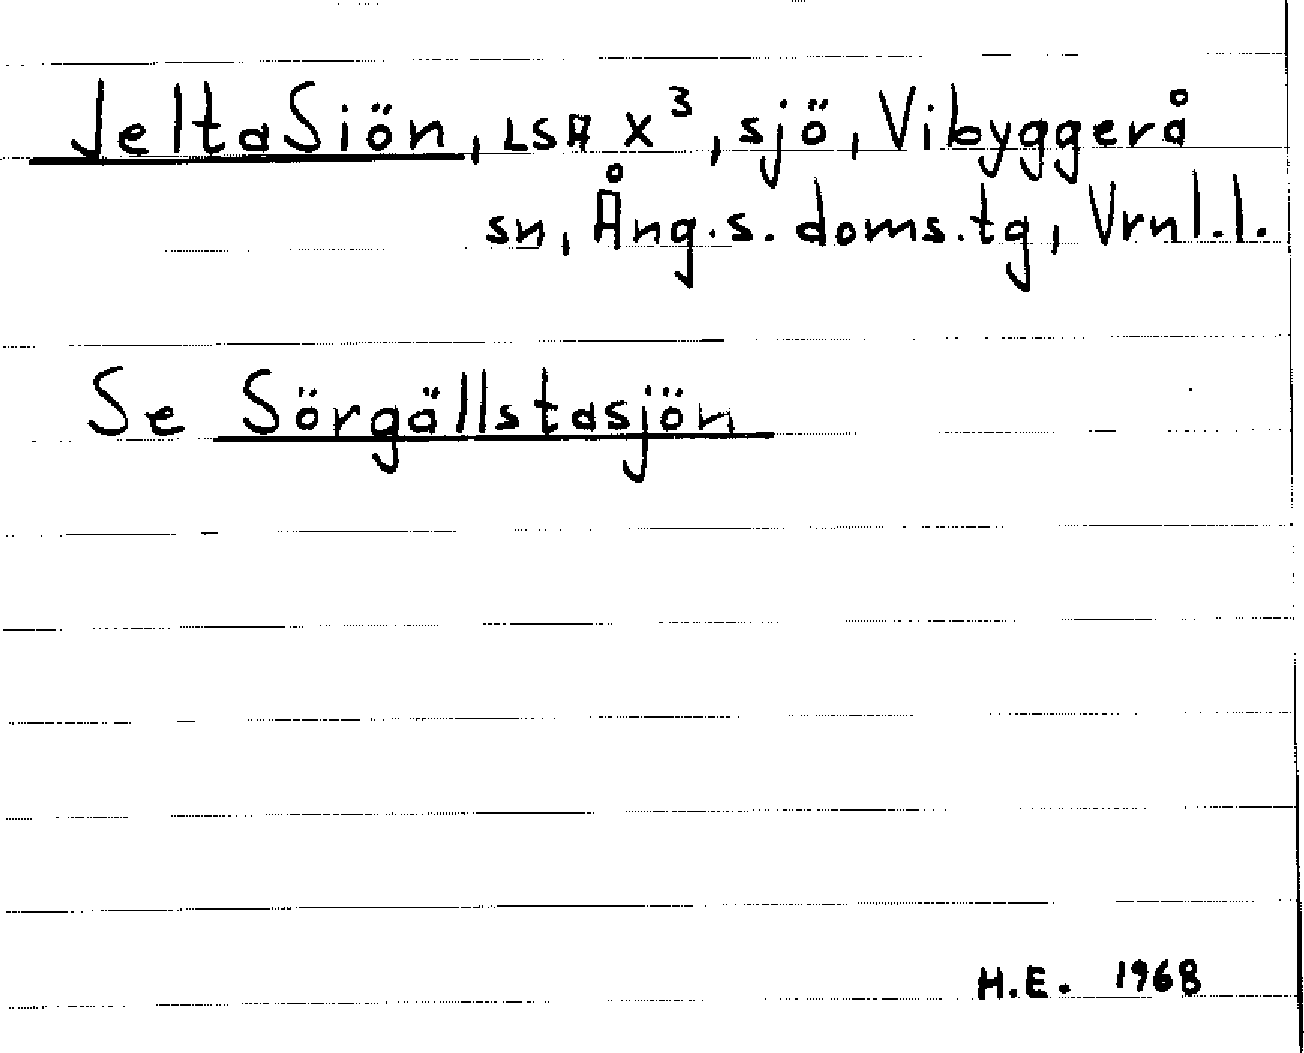 JeltaSiön, LSA X³, sjö, Vibyggerå
sn, Ång.s. doms.tg, Vrnl.l.
Se Sörgällstasjön
H.E. 1968